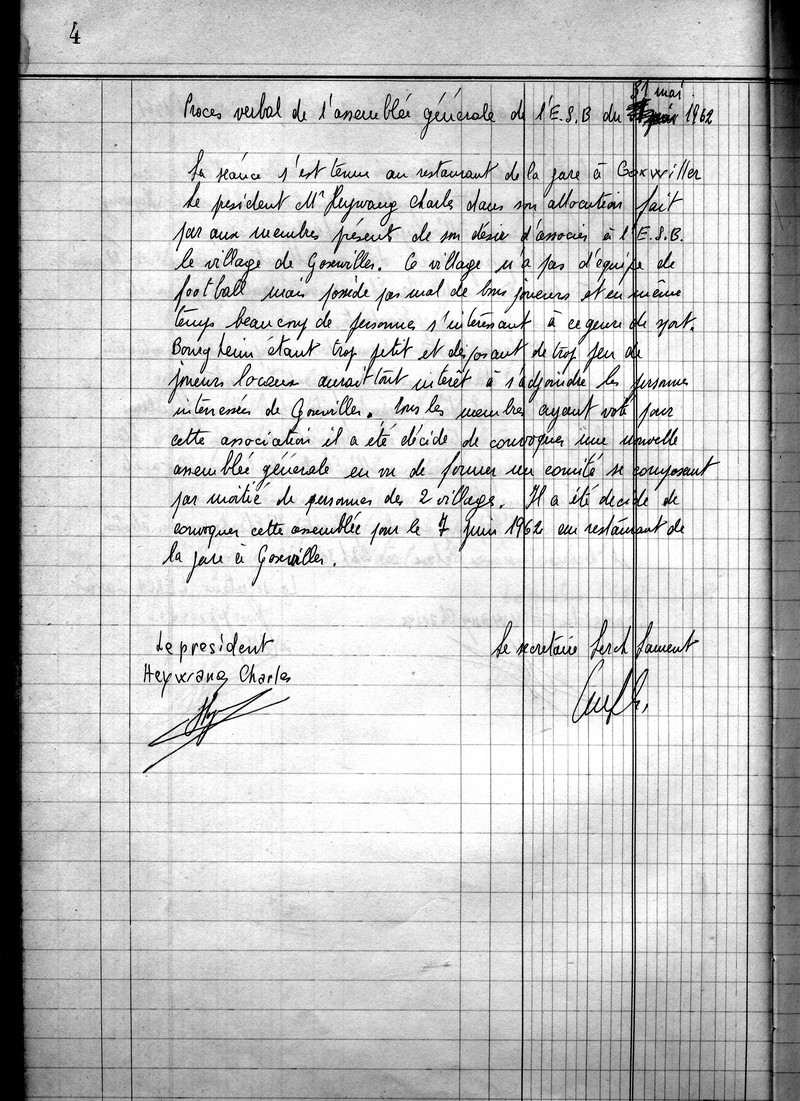 4
31 mai
Proces verbal de l'assemblée générale de l'E.S.B du 1962
La séance s'est tenue au restaurant de la gare à Goxwiller
Le president Mr Heywang Charles dans son allocution fait
par aux membres présent de son désir d'associer à l'E.S.B.
le village de Goxwiller. Ce village n'a pas d'équipe de
football mais possède pas mal de bons joueurs et en même
temps beaucoup de personnes s'intéressant à ce genre de sport.
Bourgheim étant trop petit et disposant de trop peu de
joueurs locaux aurait tout intérêt à s'adjoindre les personnes
interessées de Goxwiller. Tous les membres ayant voté pour
cette association il a été décide de convoquer une nouvelle
assemblée générale en vu de former un comité se composant
par moitié de personnes des 2 villages. Il a été decide de
convoquer cette assemblée pour le 7 juin 1962 au restaurant de
la gare à Goxwiller.
Le president
Le secretaire Lerch Laurent
Heywang Charles